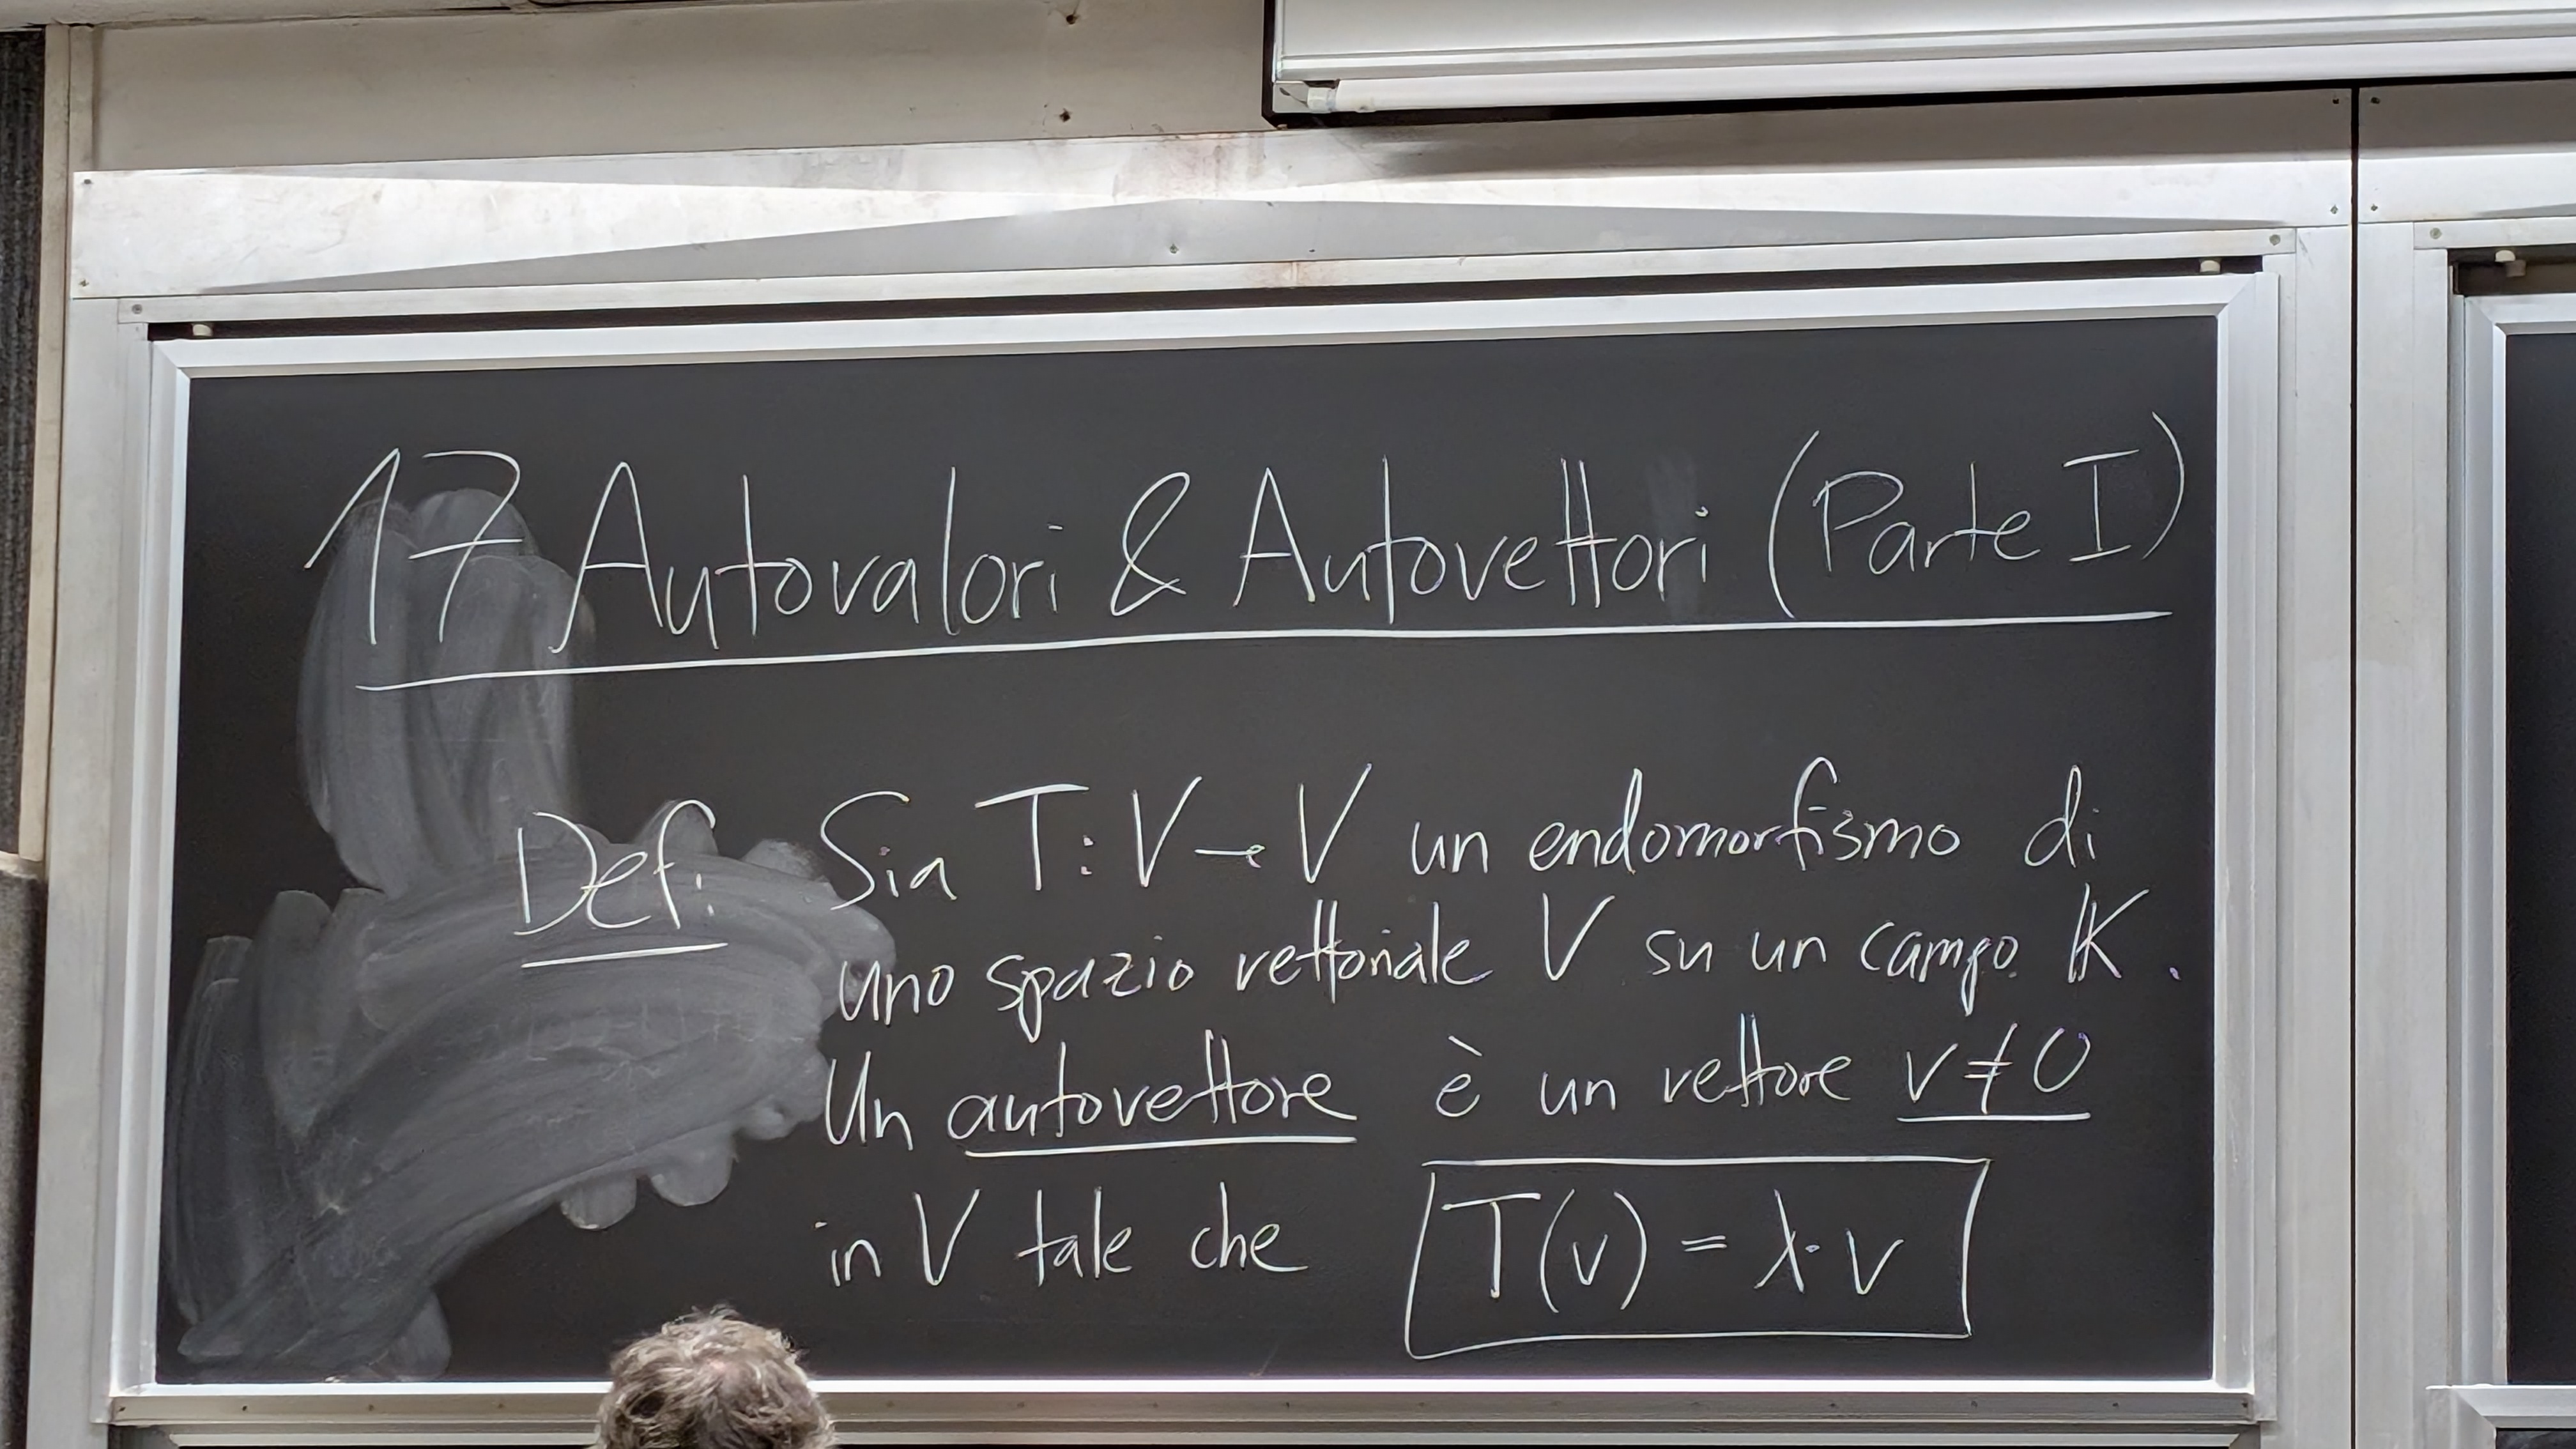 17 Autovalori & Autovettori (Parte I)
Def: Sia T: V → V un endomorfismo di
uno spazio vettoriale V su un campo 𝕂.
Un autovettore è un vettore v ≠ 0
in V tale che T(v) = λ·v